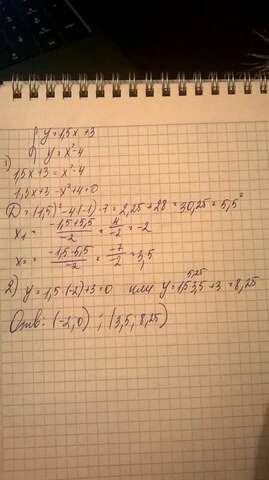 { y=1,5x+3
{ y=x²-4
1)
1,5x+3=x²-4
1,5x+3-x²+4=0
D=(1,5)²-4·(-1)·7=2,25+28=30,25=5,5²
x₁=(-1,5+5,5)/-2=4/-2=-2
x₂=(-1,5-5,5)/-2=-7/-2=3,5
2) y=1,5·(-2)+3=0 или y=1,5·3,5+3=8,25
5,25
Отв: (-2;0) ; (3,5; 8,25)